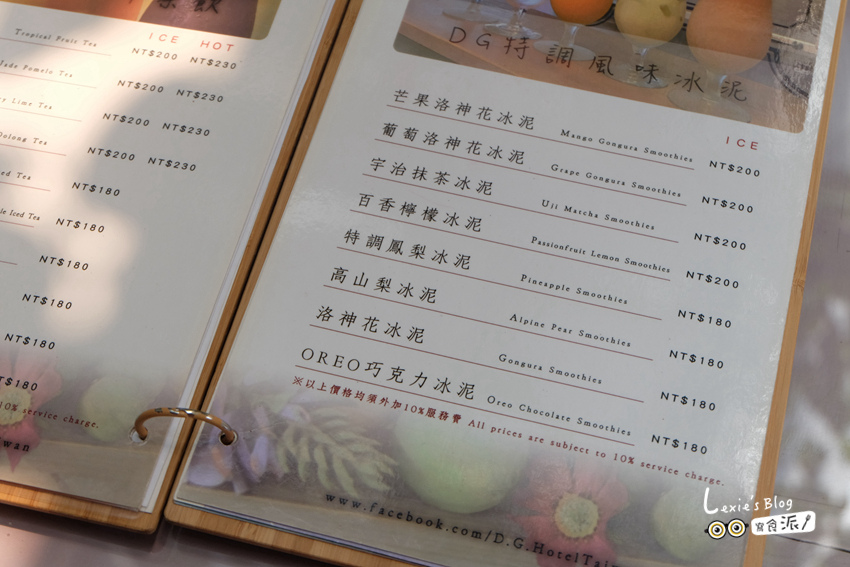 Tropical Fruit Tea
ICE HOT
NT$200 NT$230
Jade Pomelo Tea
NT$200 NT$230
Lime Tea
NT$200 NT$230
Oolong Tea
NT$200 NT$230
Tea
NT$180
Iced Tea
NT$180
NT$180
NT$180
NT$180
NT$180
10% service charge.
DG特調風味冰泥
ICE
芒果洛神花冰泥 Mango Gongura Smoothies NT$200
葡萄洛神花冰泥 Grape Gongura Smoothies NT$200
宇治抹茶冰泥 Uji Matcha Smoothies NT$200
百香檸檬冰泥 Passionfruit Lemon Smoothies NT$200
特調鳳梨冰泥 Pineapple Smoothies NT$180
高山梨冰泥 Alpine Pear Smoothies NT$180
洛神花冰泥 Gongura Smoothies NT$180
OREO巧克力冰泥 Oreo Chocolate Smoothies NT$180
※以上價格均須外加10%服務費 All prices are subject to 10% service charge.
www.facebook.com/D.G.HotelTai
Lexie's Blog
寫食派